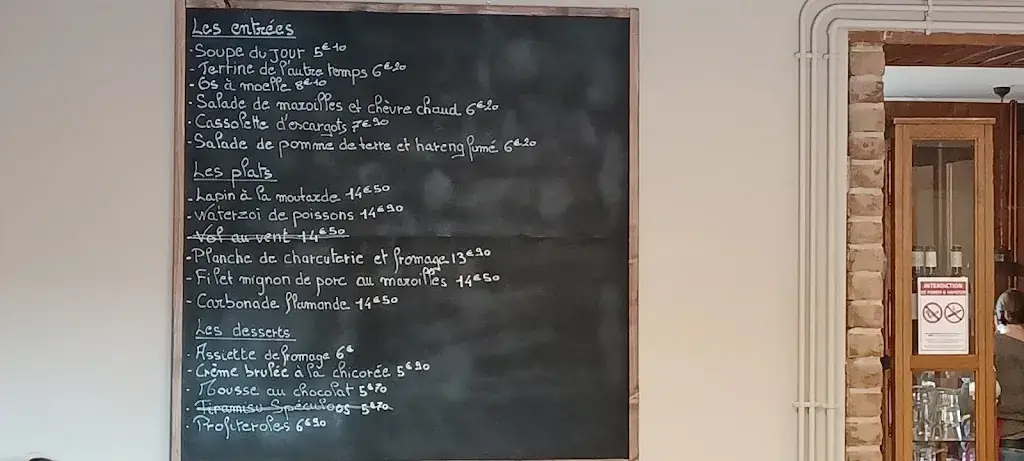 Les entrées
- Soupe du jour 5€10
- Terrine de l'autre temps 6€20
- Os à moelle 8€10
- Salade de maroilles et chèvre chaud 6€20
- Cassolette d'escargots 7€90
- Salade de pomme de terre et hareng fumé 6€20
Les plats
- Lapin à la moutarde 14€50
- Waterzoï de poissons 14€90
- Vol au vent 14€50
- Planche de charcuterie et fromage 13€90
- Filet mignon de porc au maroilles 14€50
- Carbonade flamande 14€50
Les desserts
- Assiette de fromage 6€
- Crème brulée à la chicorée 5€90
- Mousse au chocolat 5€70
- Tiramisu Spéculoos 5€70
- Profiteroles 6€90
INTERDICTION
DE FUMER & VAPOTER